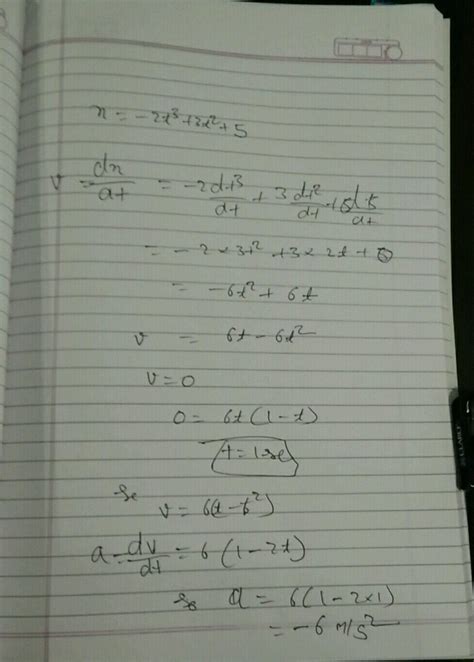 x = -2t³+2t²+5
v = dx/dt = -2dt³/dt + 3dt²/dt + d5/dt
= -2×3t² + 3×2t + 0
= -6t² + 6t
v = 6t - 6t²
v = 0
0 = 6t(1-t)
t = 1 se
So v = 6(t-t²)
a = dv/dt = 6(1-2t)
So a = 6(1-2×1)
= -6 m/s²